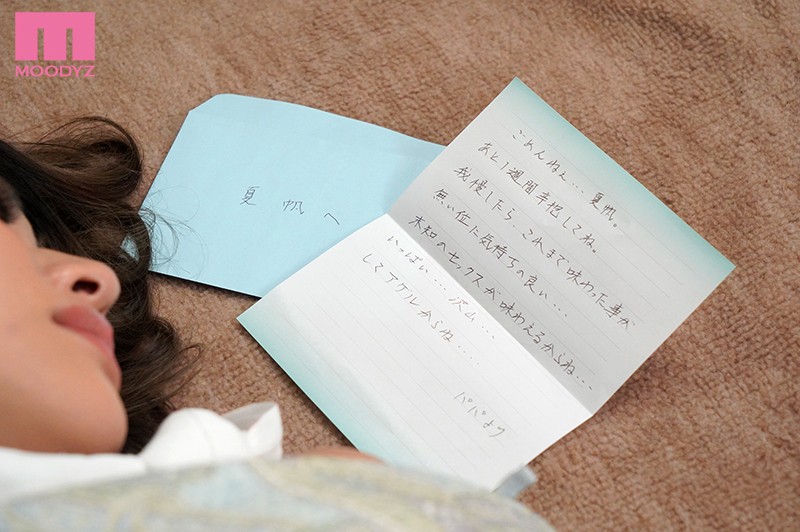 MOODYZ
夏帆へ
ごめんねぇ...夏帆。
あと1週間辛抱してね。
我慢したら、これまで味わった事が
無い位に気持ちの良い...
未知のセックスが味わえるからね...
いっぱい...沢山...
してアゲルからね...
パパより